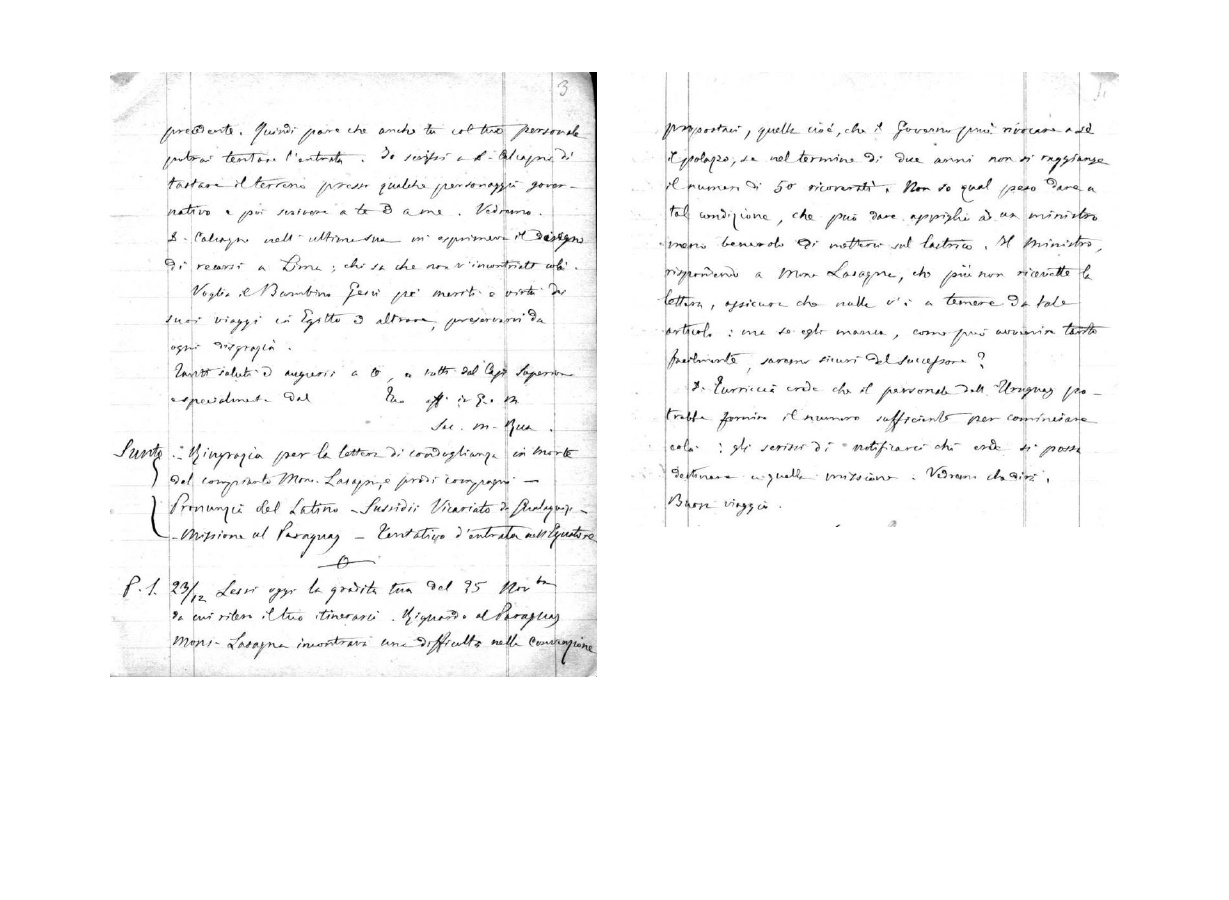 3
precedente. Quindi pare che anche tu col tuo personale
potrai tentare l'entrata. Io scrissi a D. Calcagno di
tastare il terreno presso qualche personaggio gover-
nativo e poi scrivere a te e a me. Vedremo.
D. Calcagno nell'ultima sua mi esprimeva il disegno
di recarsi a Lima; chi sa che non v'incontriate colà.
Voglia il Bambino Gesù pei meriti e virtù dei
suoi viaggi in Egitto ed altrove, preservarvi da
ogni disgrazia.
Tanti saluti ed auguri a te, a tutti dal Cap. Superiore
e specialmente dal Tuo aff. in G. e M.
Sac. M. Rua.
Sunto - Ringrazia per la lettera di condoglianza in morte
del compianto Mons. Lasagna, e prodi compagni -
Pronunzia del Latino - Sussidii Vicariato di Gualaquiza -
- Missione al Paraguay - Tentativo d'entrata nell'Equatore
P. S. 23/12 Lessi oggi la gradita tua del 25 Nov bre
da cui rilevo il tuo itinerario. Riguardo al Paraguay
Mons. Lasagna incontrava una difficoltà nella Convenzione
propostaci, quella cioè, che il Governo può rivocare a sè
il palazzo, se nel termine di due anni non si raggiunge
il numero di 50 ricoverati. Non so qual peso dare a
tal condizione, che può dare appiglio ad un ministro
meno benevolo di metterci sul lastrico. Il Ministro,
rispondendo a Mons. Lasagna, che più non ricevette la
lettera, assicura che nulla v'è a temere da tale
articolo: ma se egli manca, come può avvenire tanto
facilmente, saremo sicuri del successore?
D. Turriccia crede che il personale dell'Uruguay po-
trebbe fornire il numero sufficiente per cominciare
colà: gli scrissi di notificarci chi crede si possa
destinare a quella missione. Vedremo che dirà.
Buon viaggio.